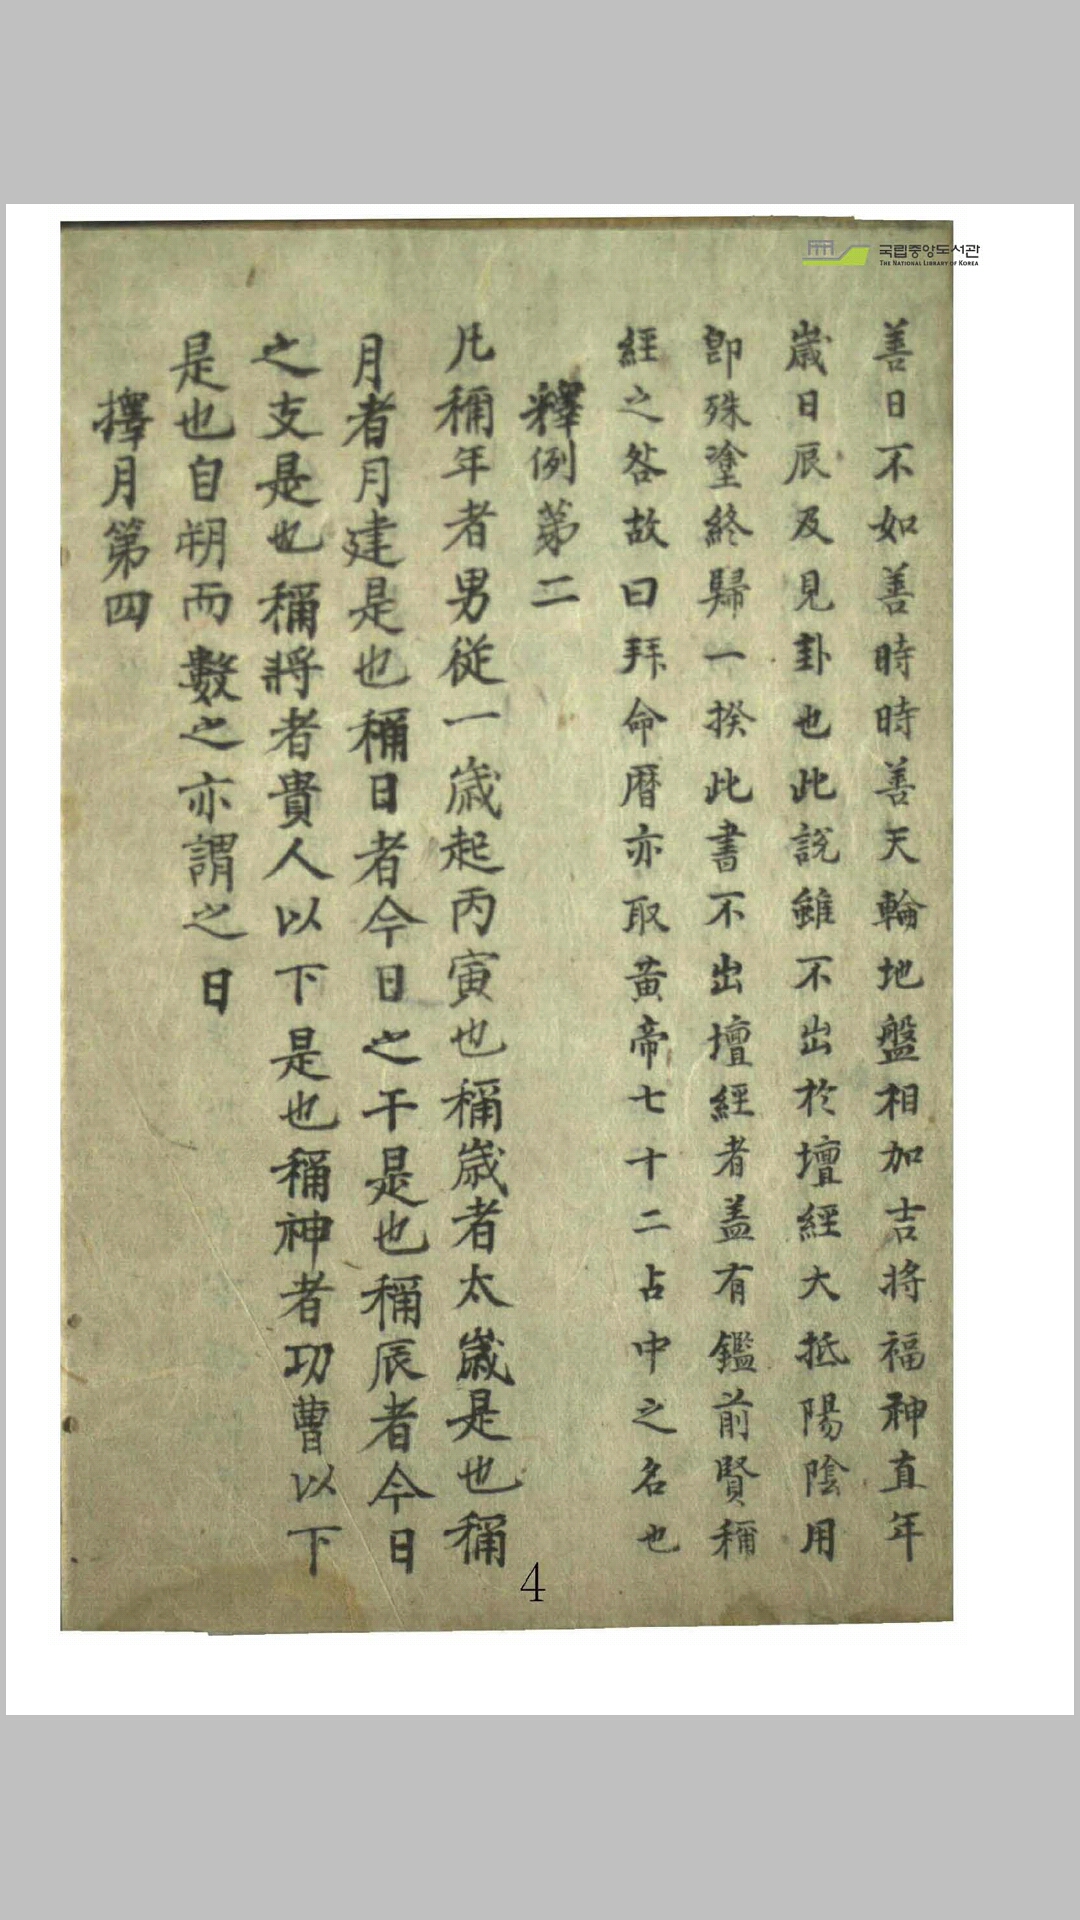 국립중앙도서관
THE NATIONAL LIBRARY OF KOREA
善日不如善時時善天輪地盤相加吉將福神直年
歲日辰及見卦也此說雖不出於壇經大抵陽陰用
卽殊塗終歸一揆此書不出壇經者盖有鑑前賢稱
經之咎故曰拜命曆亦取黃帝七十二占中之名也
釋例第二
凡稱年者男從一歲起丙寅也稱歲者太歲是也稱
月者月建是也稱日者今日之干是也稱辰者今日
之支是也稱將者貴人以下是也稱神者功曹以下
是也自朔而數之亦謂之日
擇月第四
4